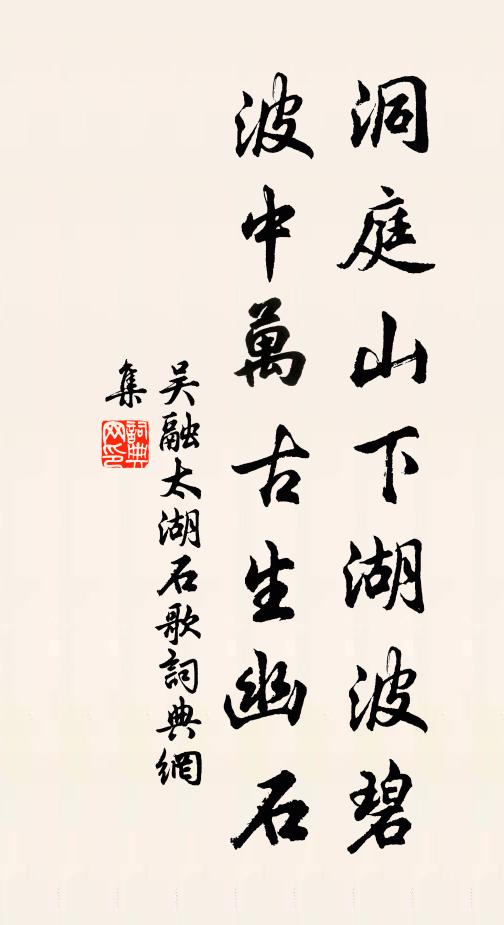 洞庭山下湖波碧
波中萬古生幽石
吴融太湖石歌詞典網
集
詞典
网印